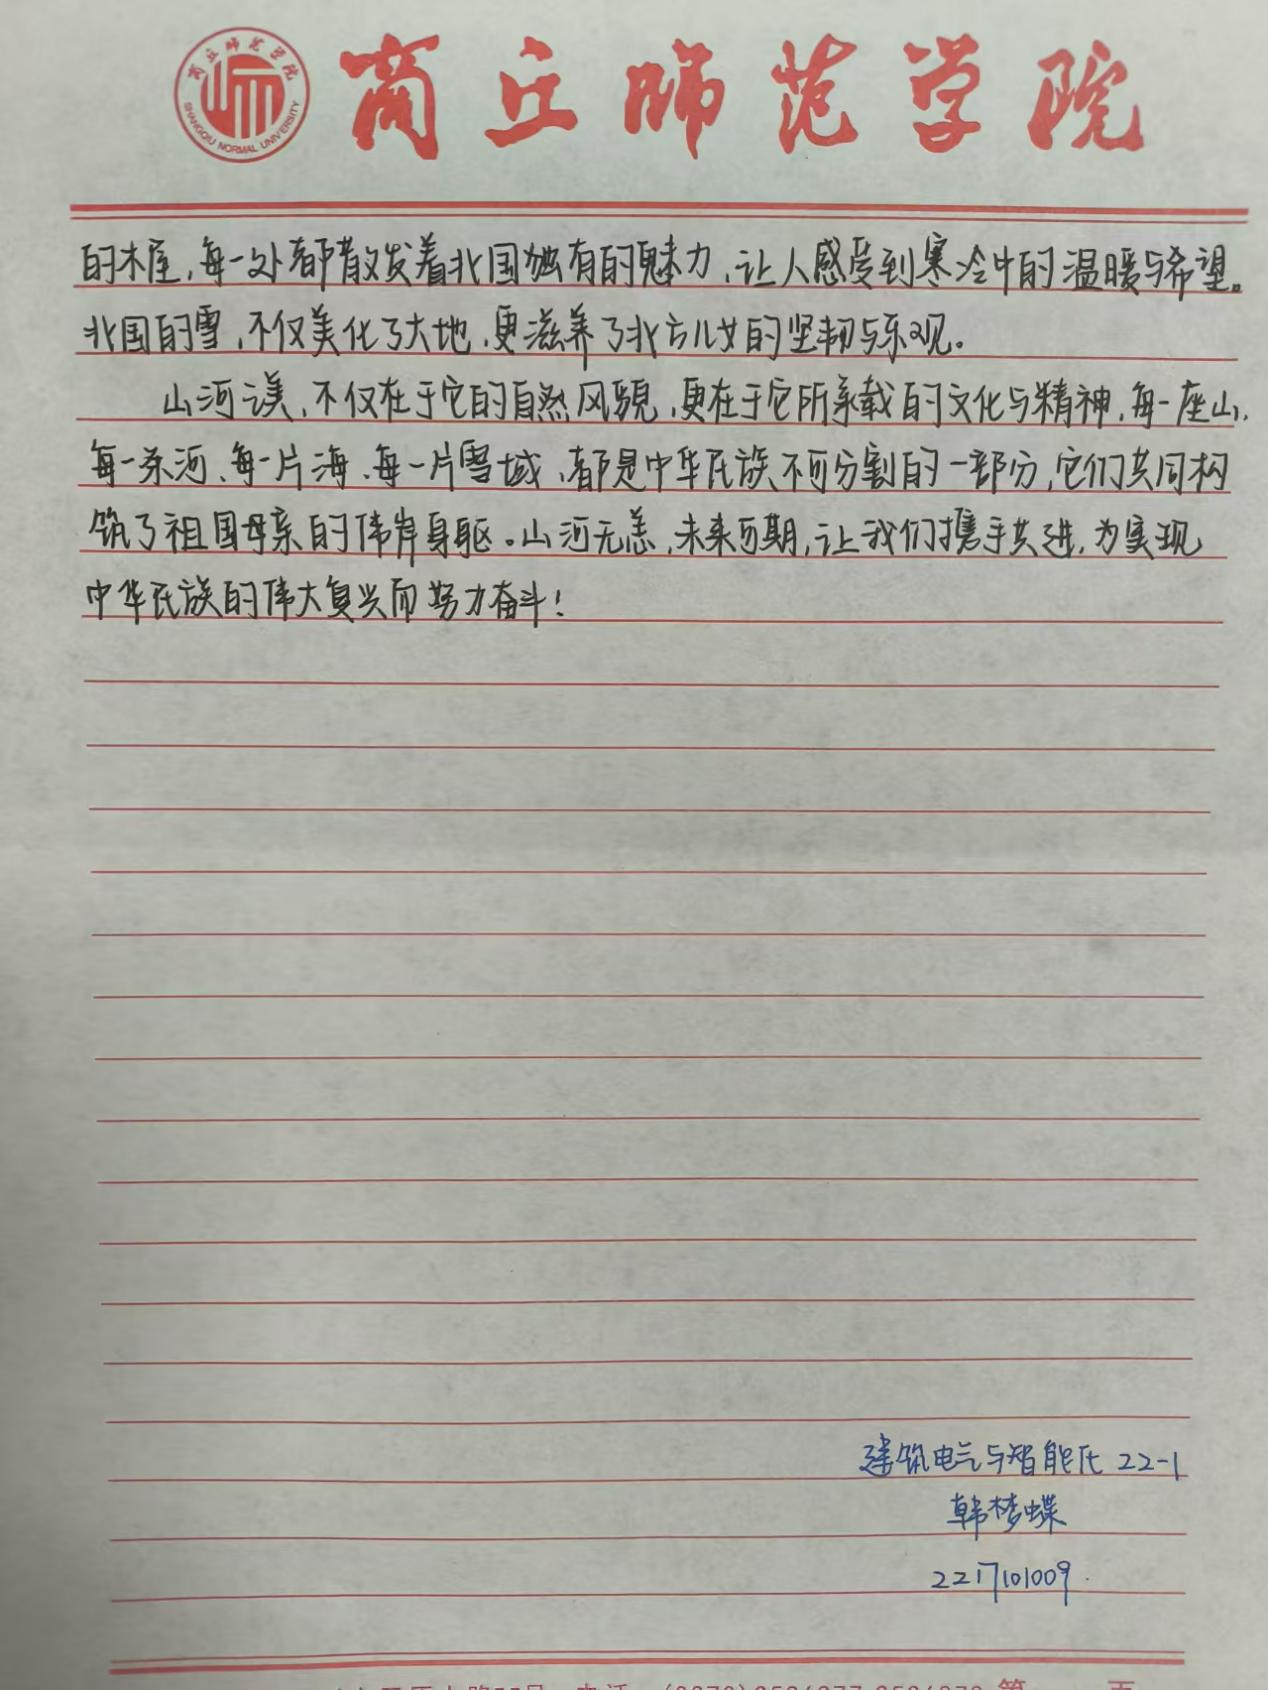 商丘师范学院
SHANGQIU NORMAL UNIVERSITY
商丘师范学院
的木屋，每一处都散发着北国独有的魅力，让人感受到寒冷中的温暖与希望。
北国的雪，不仅美化了大地，更滋养了北方儿女的坚韧与乐观。
山河之美，不仅在于它的自然风貌，更在于它所承载的文化与精神，每一座山，
每一条河、每一片海、每一片雪域，都是中华民族不可分割的一部分，它们共同构
筑了祖国母亲的伟岸身躯。山河无恙，未来可期，让我们携手共进，为实现
中华民族的伟大复兴而努力奋斗！
建筑电气与智能化 22-1
韩梦蝶
2217101009
第 页